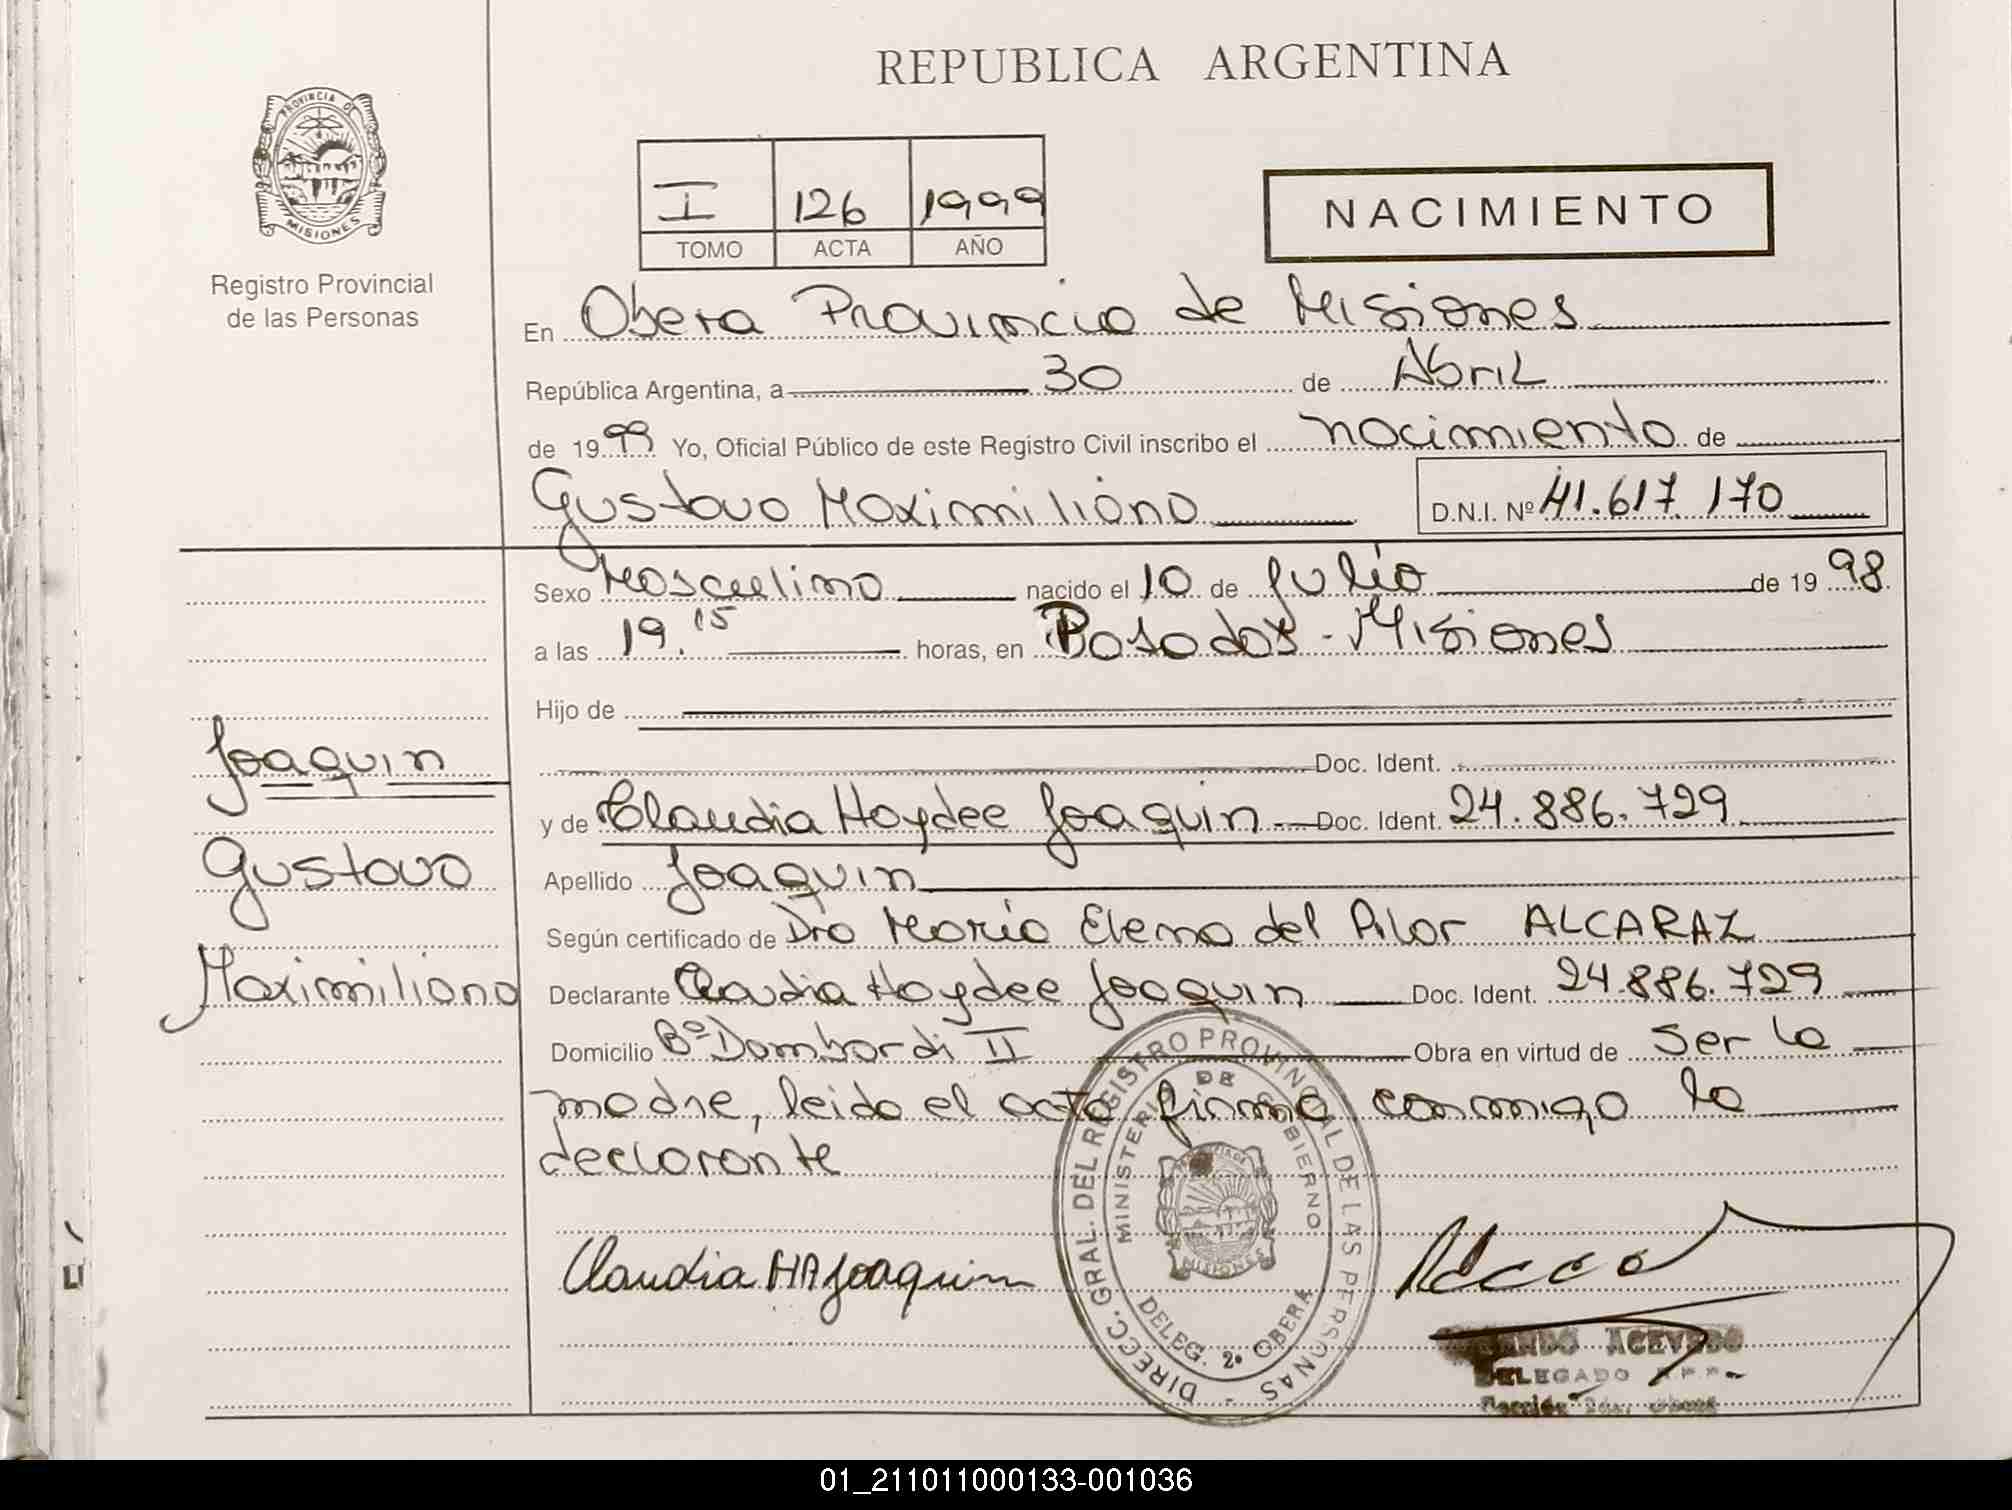 REPUBLICA ARGENTINA
PROVINCIA DE
MISIONES
Registro Provincial
de las Personas
I 126 1999
TOMO ACTA AÑO
NACIMIENTO
En Obera Provincia de Misiones
República Argentina, a 30 de Abril
de 1999 Yo, Oficial Público de este Registro Civil inscribo el nacimiento de
Gustavo Maximiliano D.N.I. Nº 41.617.170
Sexo Masculino nacido el 10 de Julio de 1998.
a las 19.15 horas, en Posadas - Misiones
Hijo de
Doc. Ident.
y de Claudia Haydee Joaquin Doc. Ident. 24.886.729
Apellido Joaquin
Según certificado de Dra Maria Elena del Pilar ALCARAZ
Declarante Claudia Haydee Joaquin Doc. Ident. 24.886.729
Domicilio Bº Dambardi II Obra en virtud de ser la
madre, leido el acta firma conmigo la
declarante
Joaquin
Gustavo
Maximiliano
Claudia H Joaquin
DIRECC. GRAL. DEL REGISTRO PROVINCIAL DE LAS PERSONAS -
MINISTERIO DE GOBIERNO
MISIONES
DELEG. 2ª OBERA
ACEVEDO
DELEGADO
01_211011000133-001036